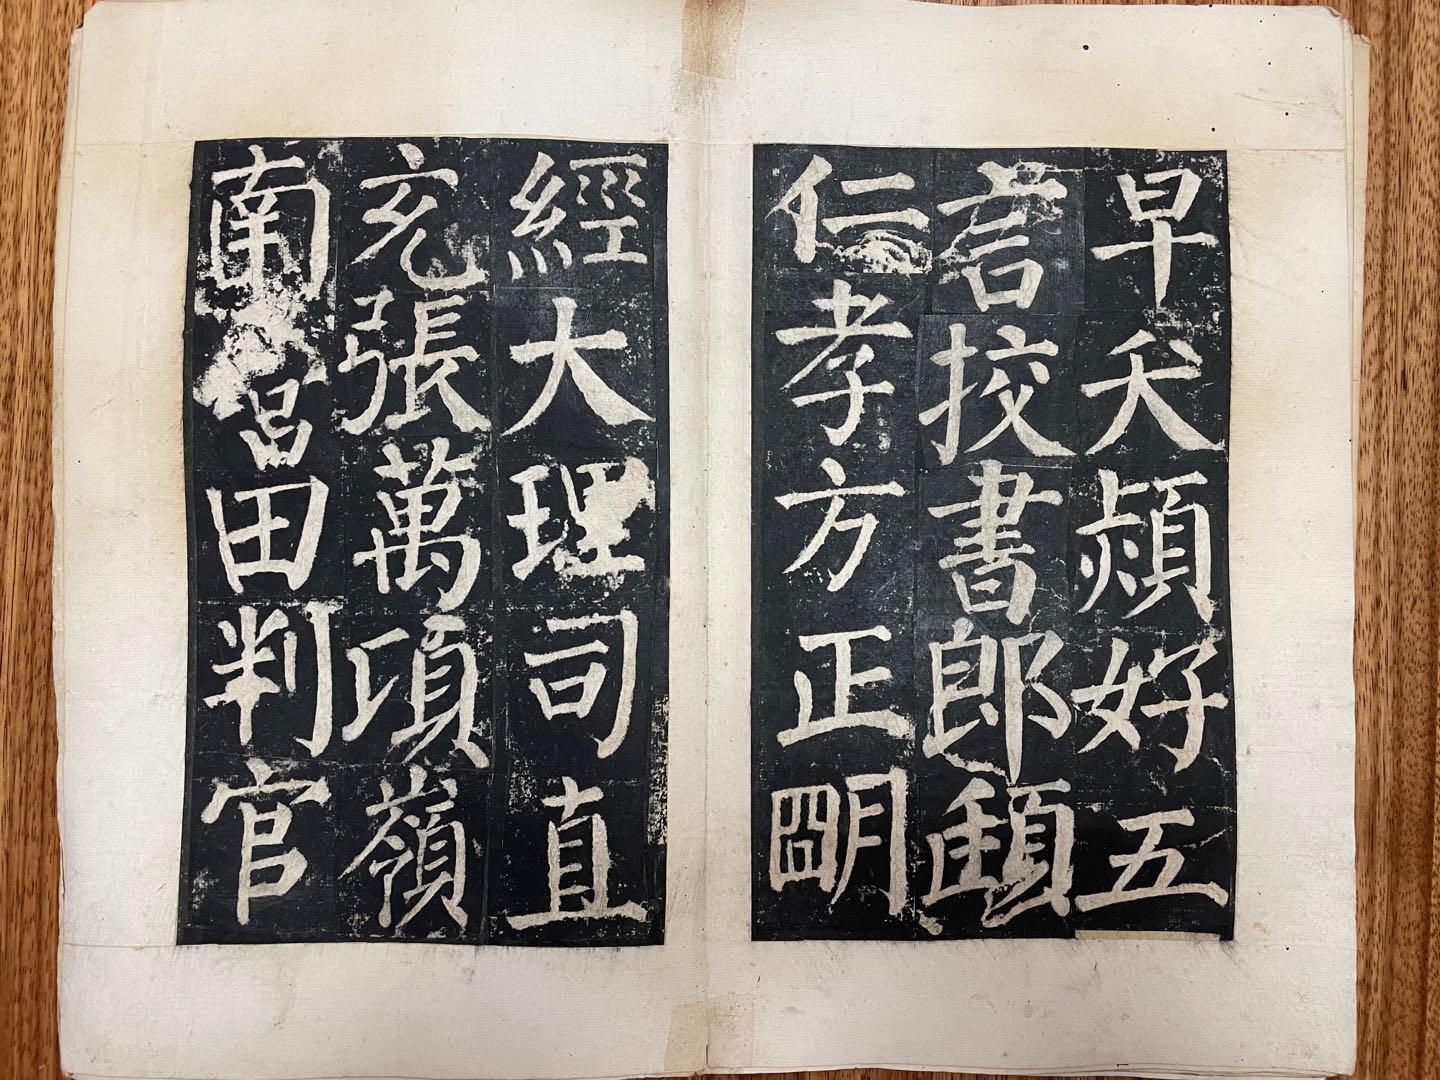 早夭頻好五
言挍書郎頲
仁孝方正朙
經大理司直
充張萬頃嶺
南營田判官